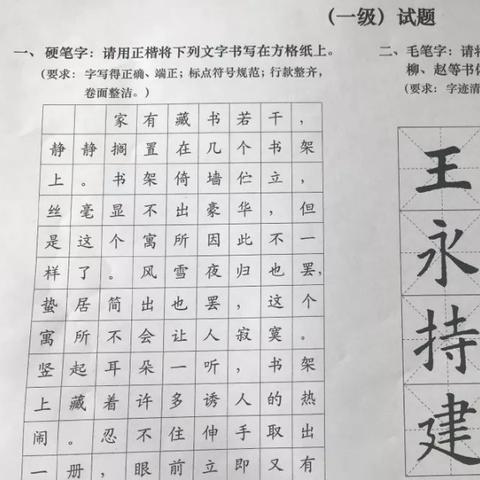 （一级）试题
一、硬笔字：请用正楷将下列文字书写在方格纸上。
（要求：字写得正确、端正；标点符号规范；行款整齐，
卷面整洁。）
家有藏书若干，
静静搁置在几个书架
上。书架倚墙伫立，
丝毫显不出豪华，但
是这个寓所因此不一
样了。风雪夜归也罢，
蛰居简出也罢，这个
寓所不会让人寂寞。
竖起耳朵一听，书架
上藏着许多诱人的热
闹。忍不住伸手取出
一册，眼前立即又有
二、毛笔字：请
柳、赵等书
（要求：字迹清
王
永
持
建